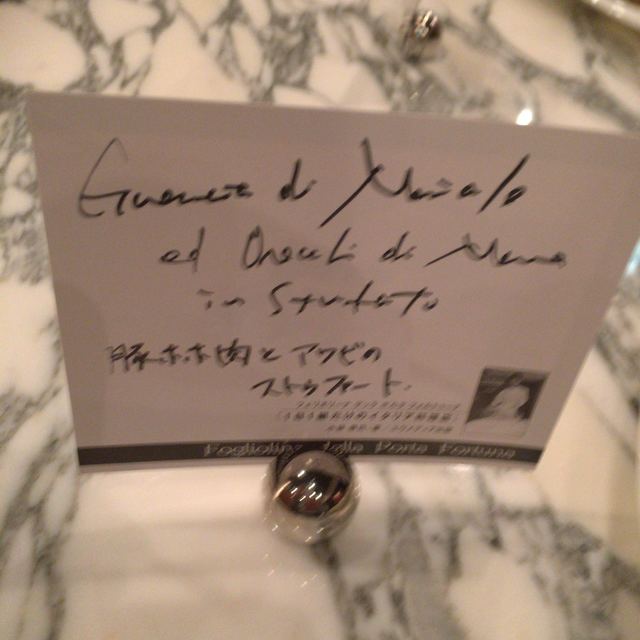 Guancia di Maiale
ed Orecchi di Mare
in Stufato
豚ホホ肉とアワビの
ストゥファート.
Fogliolina della Porta Fortuna